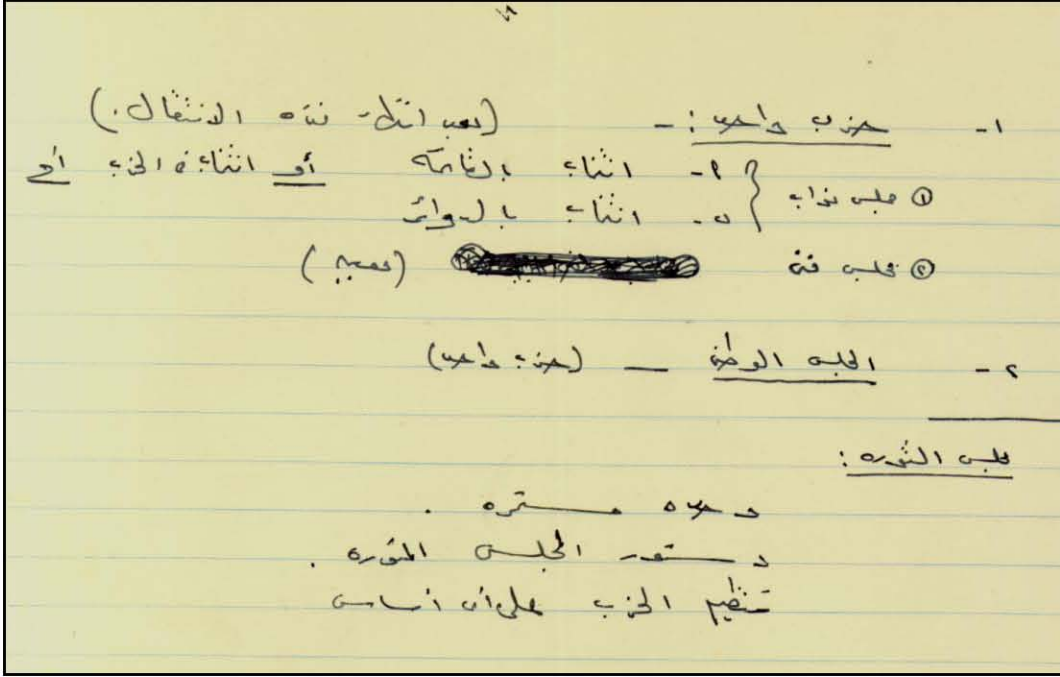 ١- حزب واحد :- (بعد انتهاء فترة الانتقال.)
① مجلس نواب { ٩- انتخاب بالقائمة أو انتخاب الحزب أو
ب- انتخاب بالدوائر
② مجلس فنى (تعيين)
٢- المجلس الوطنى — (حزب واحد)
مجلس الثورة :
وحده مستمره .
دستور المجلس الثوره .
تنظيم الحزب على أى أساس